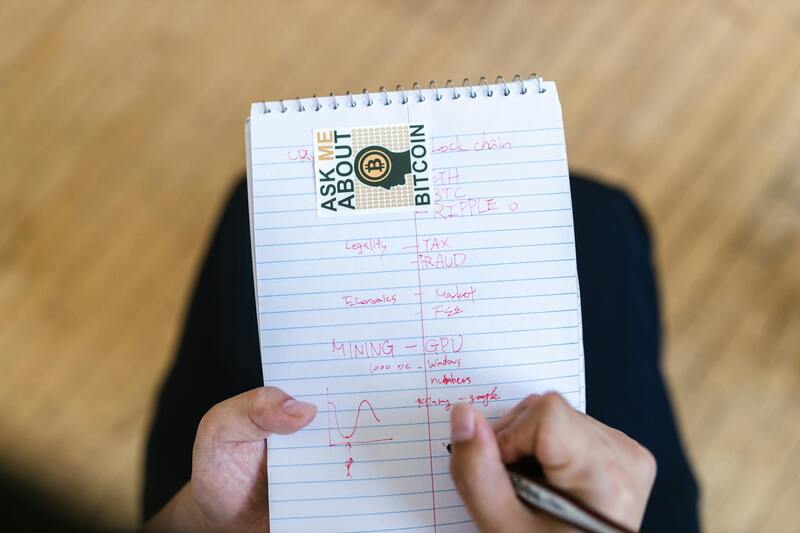 ASK ME
ABOUT
BITCOIN
lock chain
ETH
BTC
- RIPPLE
Legality - TAX
- FRAUD
Economics - Market
- Fee
MINING - GPU
1000 - windows
numbers
- google